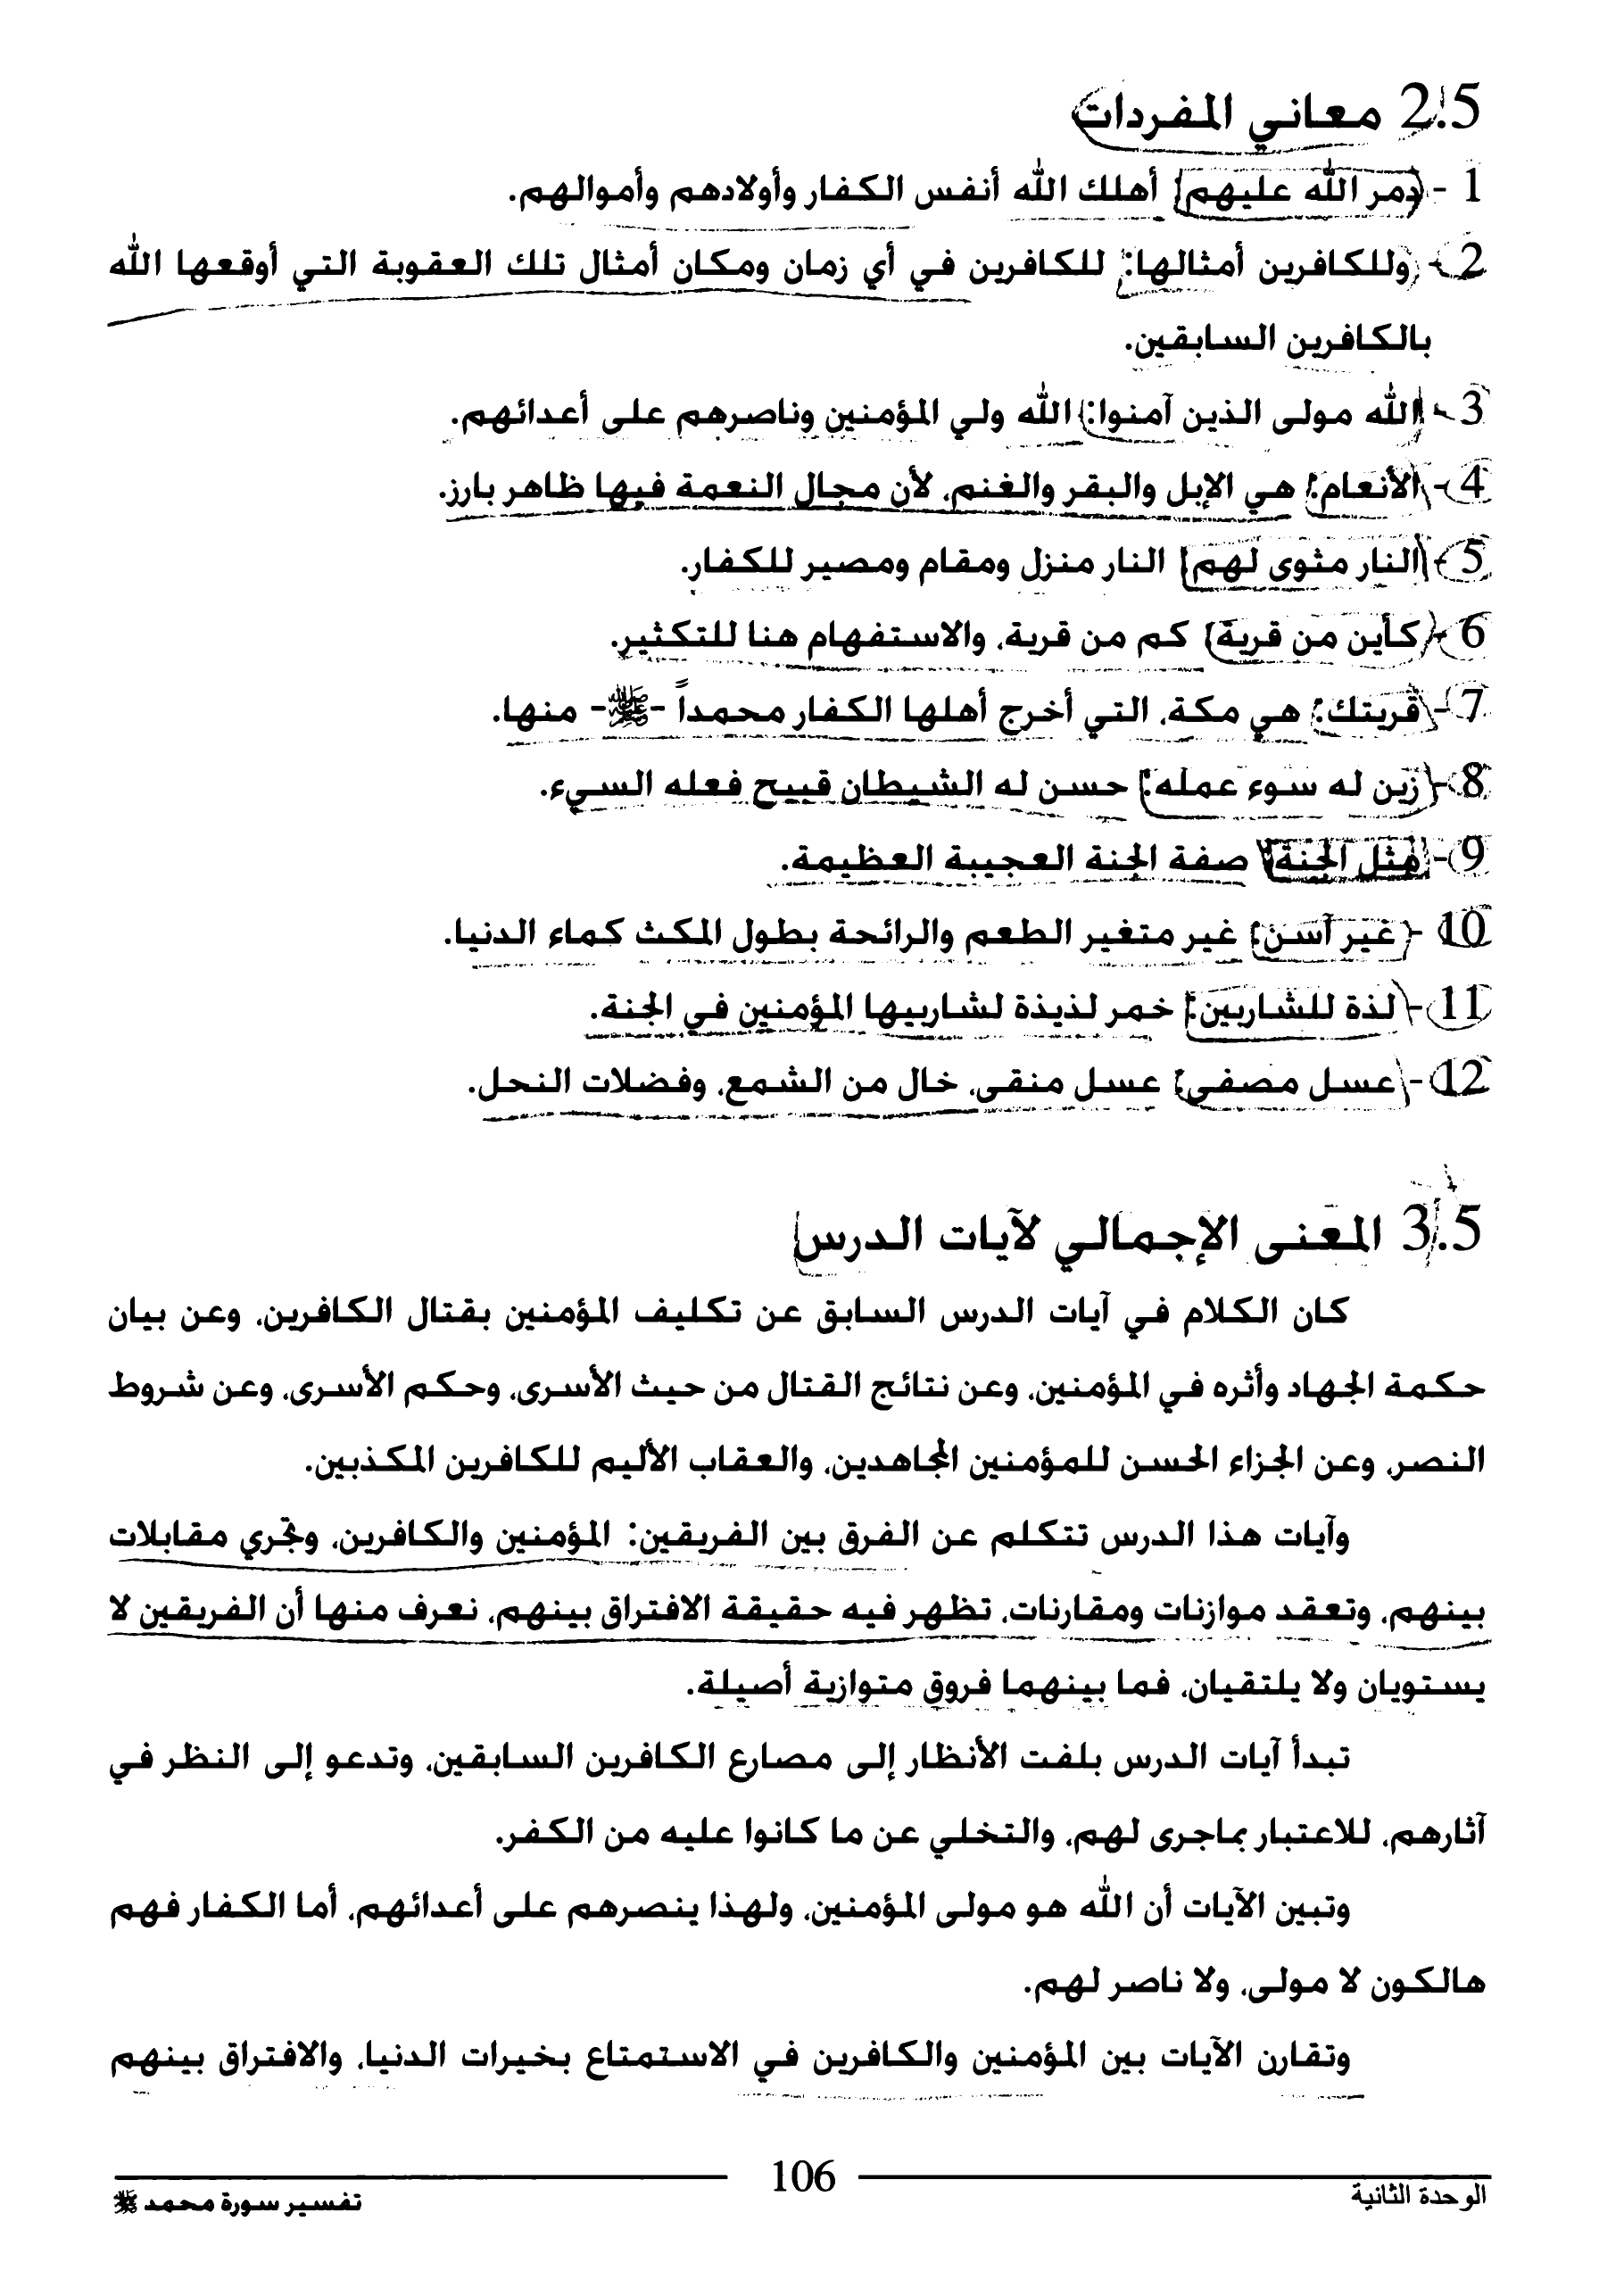 2.5 معاني المفردات
1 - دمر الله عليهم: أهلك الله أنفس الكفار وأولادهم وأموالهم.
2 - وللكافرين أمثالها: للكافرين في أي زمان ومكان أمثال تلك العقوبة التي أوقعها الله
بالكافرين السابقين.
3 - الله مولى الذين آمنوا: الله ولي المؤمنين وناصرهم على أعدائهم.
4 - الأنعام: هي الإبل والبقر والغنم، لأن مجال النعمة فيها ظاهر بارز.
5 - النار مثوى لهم: النار منزل ومقام ومصير للكفار.
6 - كأين من قرية: كم من قرية، والاستفهام هنا للتكثير.
7 - قريتك: هي مكة، التي أخرج أهلها الكفار محمداً -ﷺ- منها.
8 - زين له سوء عمله: حسن له الشيطان قبيح فعله السيء.
9 - مثل الجنة: صفة الجنة العجيبة العظيمة.
10 - غير آسن: غير متغير الطعم والرائحة بطول المكث كماء الدنيا.
11 - لذة للشاربين: خمر لذيذة لشاربيها المؤمنين في الجنة.
12 - عسل مصفى: عسل منقى، خال من الشمع، وفضلات النحل.
3.5 المعنى الإجمالي لآيات الدرس
كان الكلام في آيات الدرس السابق عن تكليف المؤمنين بقتال الكافرين، وعن بيان
حكمة الجهاد وأثره في المؤمنين، وعن نتائج القتال من حيث الأسرى، وحكم الأسرى، وعن شروط
النصر، وعن الجزاء الحسن للمؤمنين المجاهدين، والعقاب الأليم للكافرين المكذبين.
وآيات هذا الدرس تتكلم عن الفرق بين الفريقين: المؤمنين والكافرين، وتجري مقابلات
بينهم، وتعقد موازنات ومقارنات، تظهر فيه حقيقة الافتراق بينهم، نعرف منها أن الفريقين لا
يستويان ولا يلتقيان، فما بينهما فروق متوازية أصيلة.
تبدأ آيات الدرس بلفت الأنظار إلى مصارع الكافرين السابقين، وتدعو إلى النظر في
آثارهم، للاعتبار بماجرى لهم، والتخلي عن ما كانوا عليه من الكفر.
وتبين الآيات أن الله هو مولى المؤمنين، ولهذا ينصرهم على أعدائهم، أما الكفار فهم
هالكون لا مولى، ولا ناصر لهم.
وتقارن الآيات بين المؤمنين والكافرين في الاستمتاع بخيرات الدنيا، والافتراق بينهم
106
الوحدة الثانية
تفسير سورة محمد ﷺ